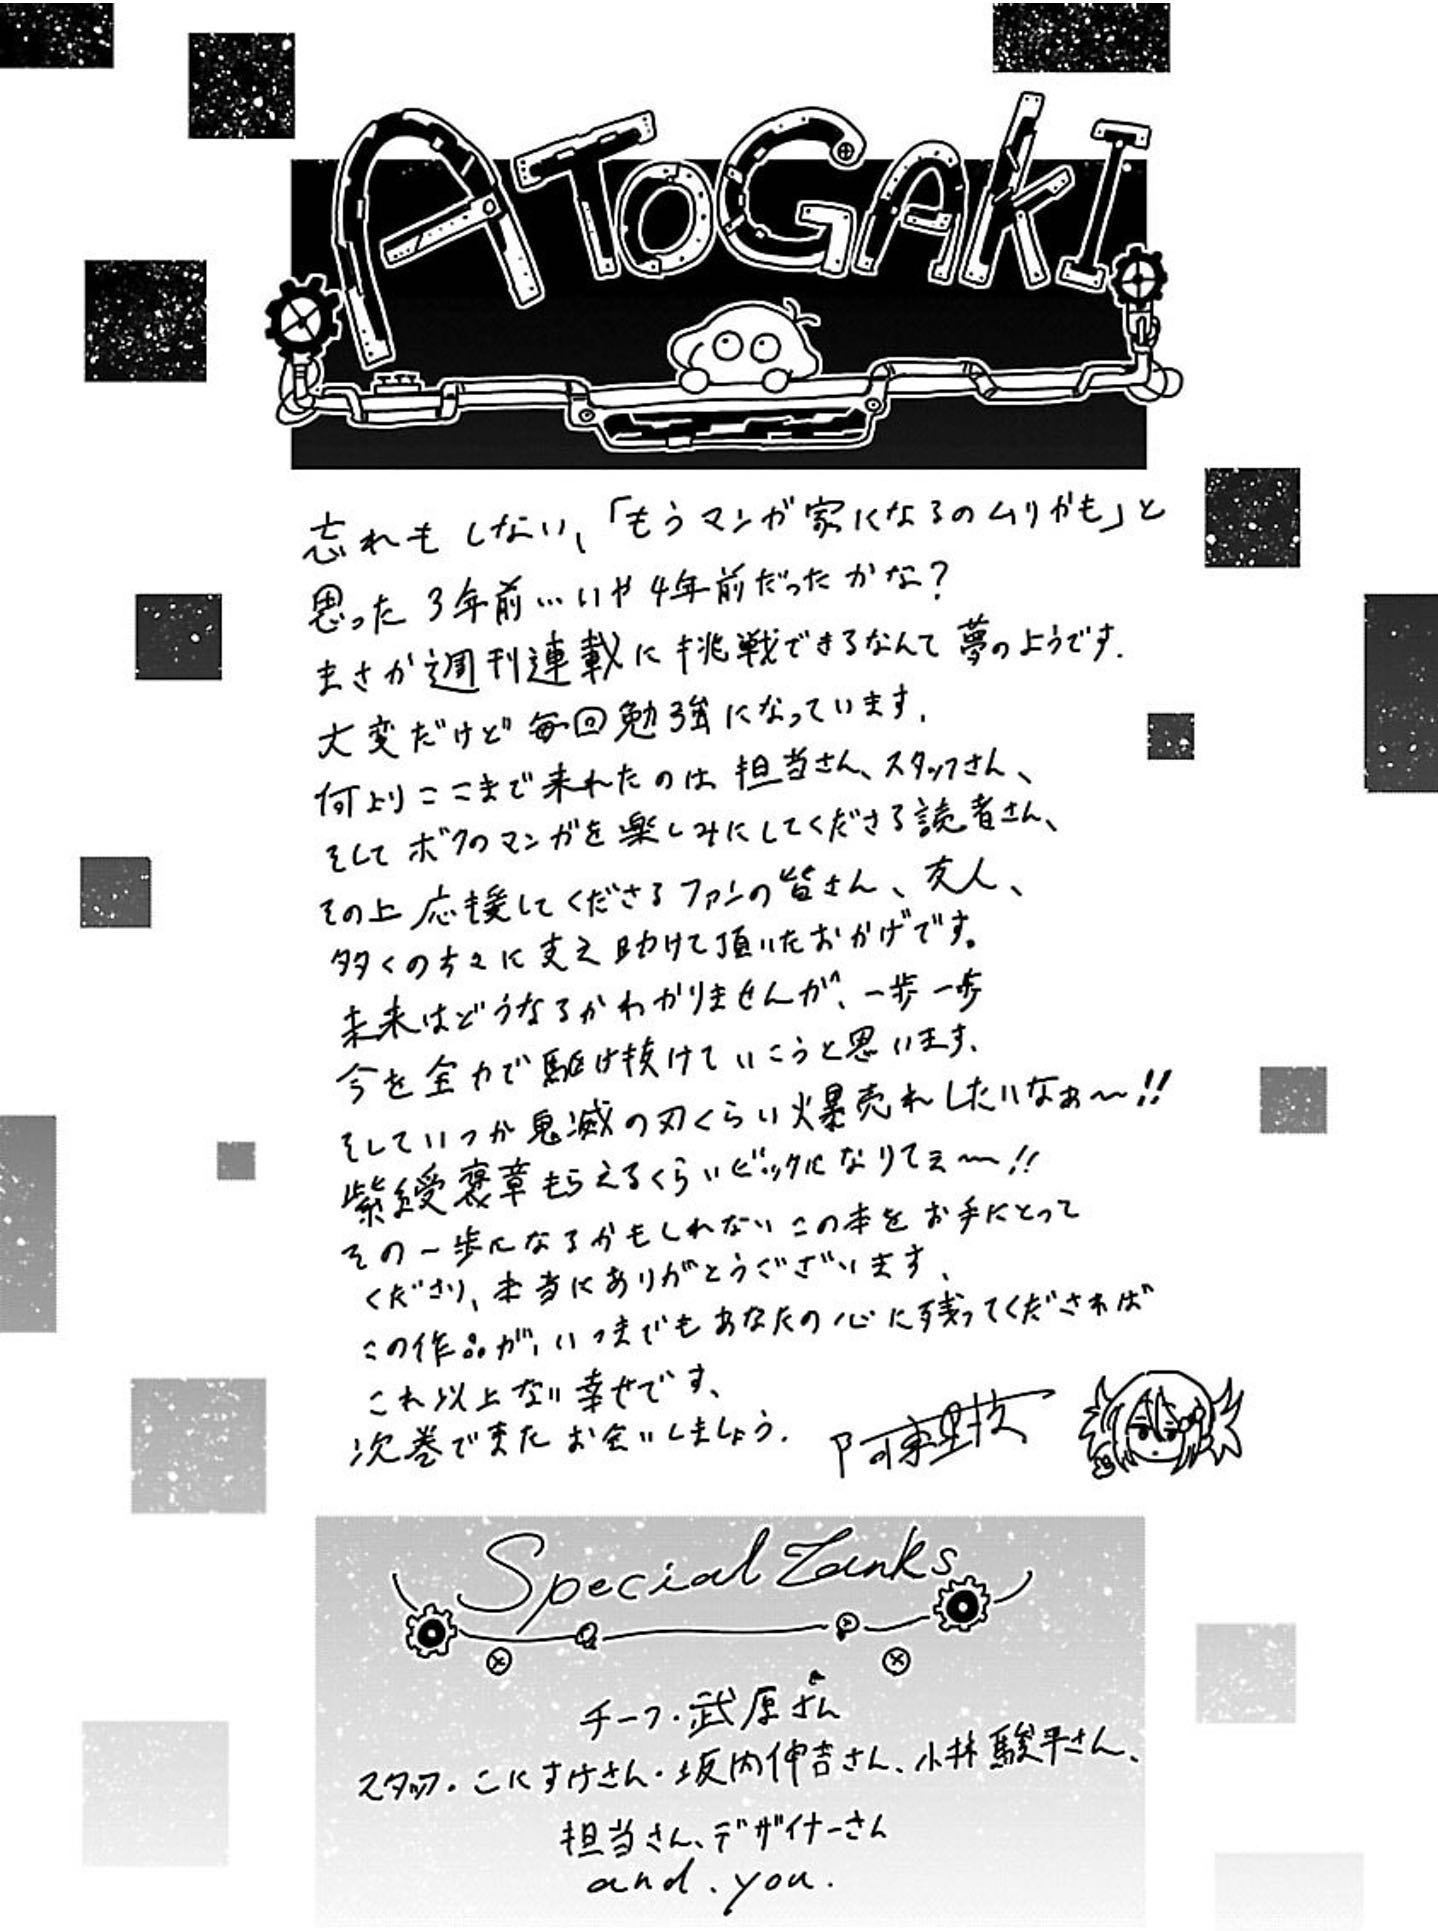 ATOGAKI
忘れもしない、「もうマンガ家になるのムリかも」と
思った3年前…いや4年前だったかな？
まさか週刊連載に挑戦できるなんて夢のようです.
大変だけど毎回勉強になっています.
何よりここまで来れたのは担当さん、スタッフさん、
そしてボクのマンガを楽しみにしてくださる読者さん、
その上応援してくださるファンの皆さん、友人、
多くの方々に支え助けて頂いたおかげです。
未来はどうなるかわかりませんが、一歩一歩
今を全力で駆け抜けていこうと思います.
そしていつか鬼滅の刃くらい爆売れしたいなぁ～!!
紫綬褒章もらえるくらいビックになりてぇ～!!
その一歩になるかもしれないこの本をお手にとって
くださり、本当にありがとうございます.
この作品が、いつまでもあなたの心に残ってくだされば
これ以上ない幸せです、
次巻でまたお会いしましょう.
Special Tanks
チーフ・武原さん
スタッフ・こにすけさん・坂内伸吉さん、小林駿平さん、
担当さん、デザイナーさん
and.you.